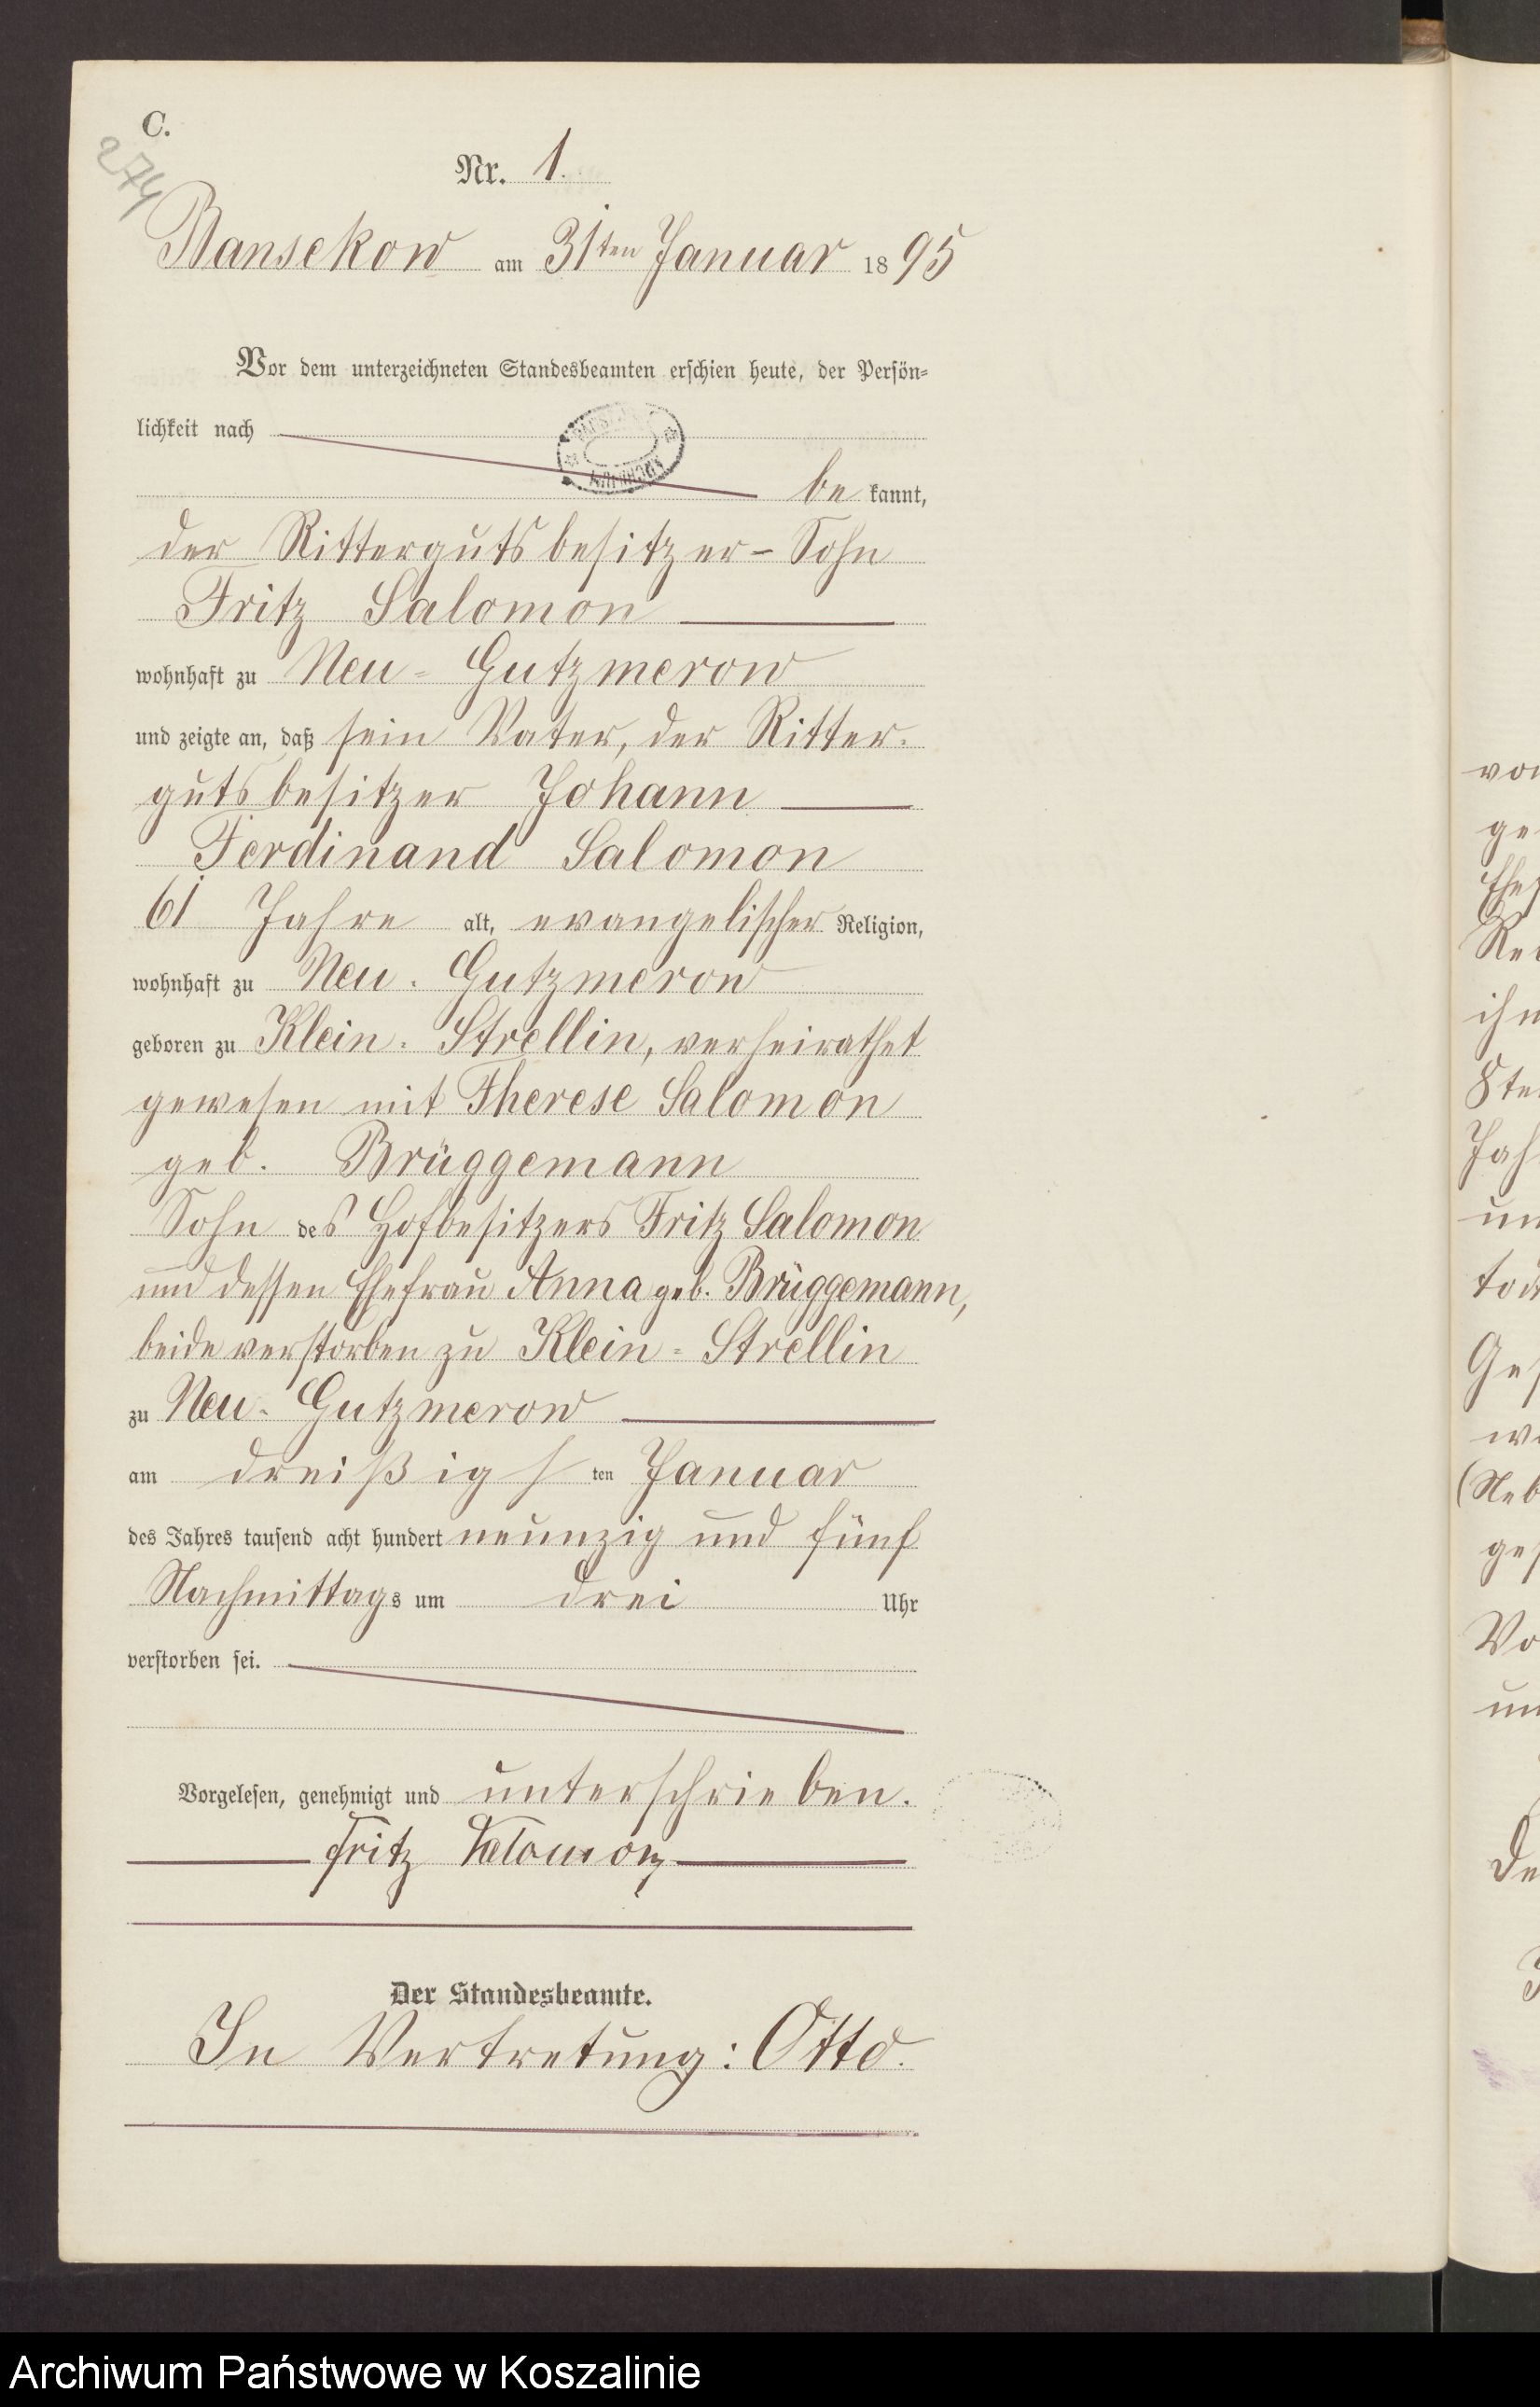 C.
274
Nr. 1.
Bansekow am 31ten Januar 1895
Vor dem unterzeichneten Standesbeamten erschien heute, der Persön-
lichkeit nach
be kannt,
der Rittergutsbesitzer-Sohn
Fritz Salomon
wohnhaft zu Neu-Gutzmerow
und zeigte an, daß sein Vater, der Ritter-
gutsbesitzer Johann
Ferdinand Salomon
61 Jahre alt, evangelischer Religion,
wohnhaft zu Neu-Gutzmerow
geboren zu Klein-Strellin, verheirathet
gewesen mit Therese Salomon
geb. Brüggemann
Sohn des Hofbesitzers Fritz Salomon
und dessen Ehefrau Anna geb. Brüggemann,
beide verstorben zu Klein-Strellin
zu Neu-Gutzmerow
am dreißigsten Januar
des Jahres tausend acht hundert neunzig und fünf
Nachmittags um drei Uhr
verstorben sei.
Vorgelesen, genehmigt und unterschrieben.
Fritz Salomon
Der Standesbeamte.
In Vertretung: Otto.
Archiwum Państwowe w Koszalinie